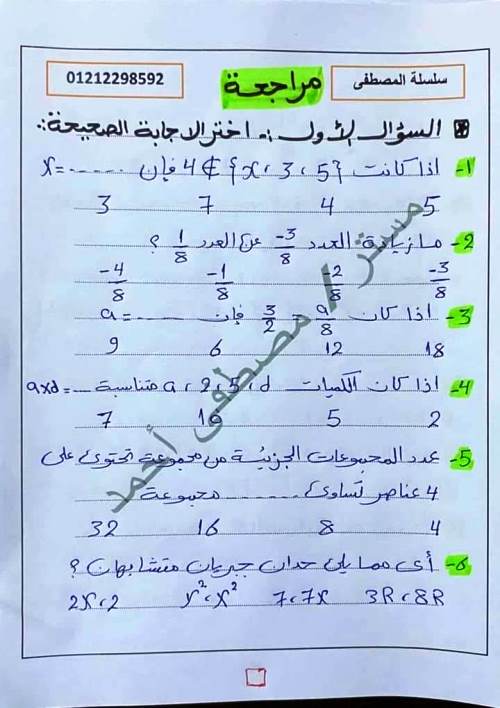 سلسلة المصطفى
مراجعة
01212298592
السؤال الأول :- اختر الاجابة الصحيحة :-
1- اذا كانت 4 ∉ {x ، 3 ، 5} فإن x = ......
5 4 7 3
2- ما زيادة العدد -3/8 عن العدد 1/8 ؟
-3/8 -2/8 -1/8 -4/8
3- اذا كان a/8 = 3/2 فإن ...... a =
18 12 6 9
4- اذا كان الكميات a ، 2 ، 5 ، d متناسبة ... a×d =
2 5 10 7
5- عدد المجموعات الجزئية من مجموعة تحتوى على
4 عناصر تساوى ........ مجموعة
4 8 16 32
6- أى مما يلى حدان جبريان متشابهان ؟
3R ، 8R 7 ، 7x y² ، x² 2x ، 2
مستر / مصطفى أحمد